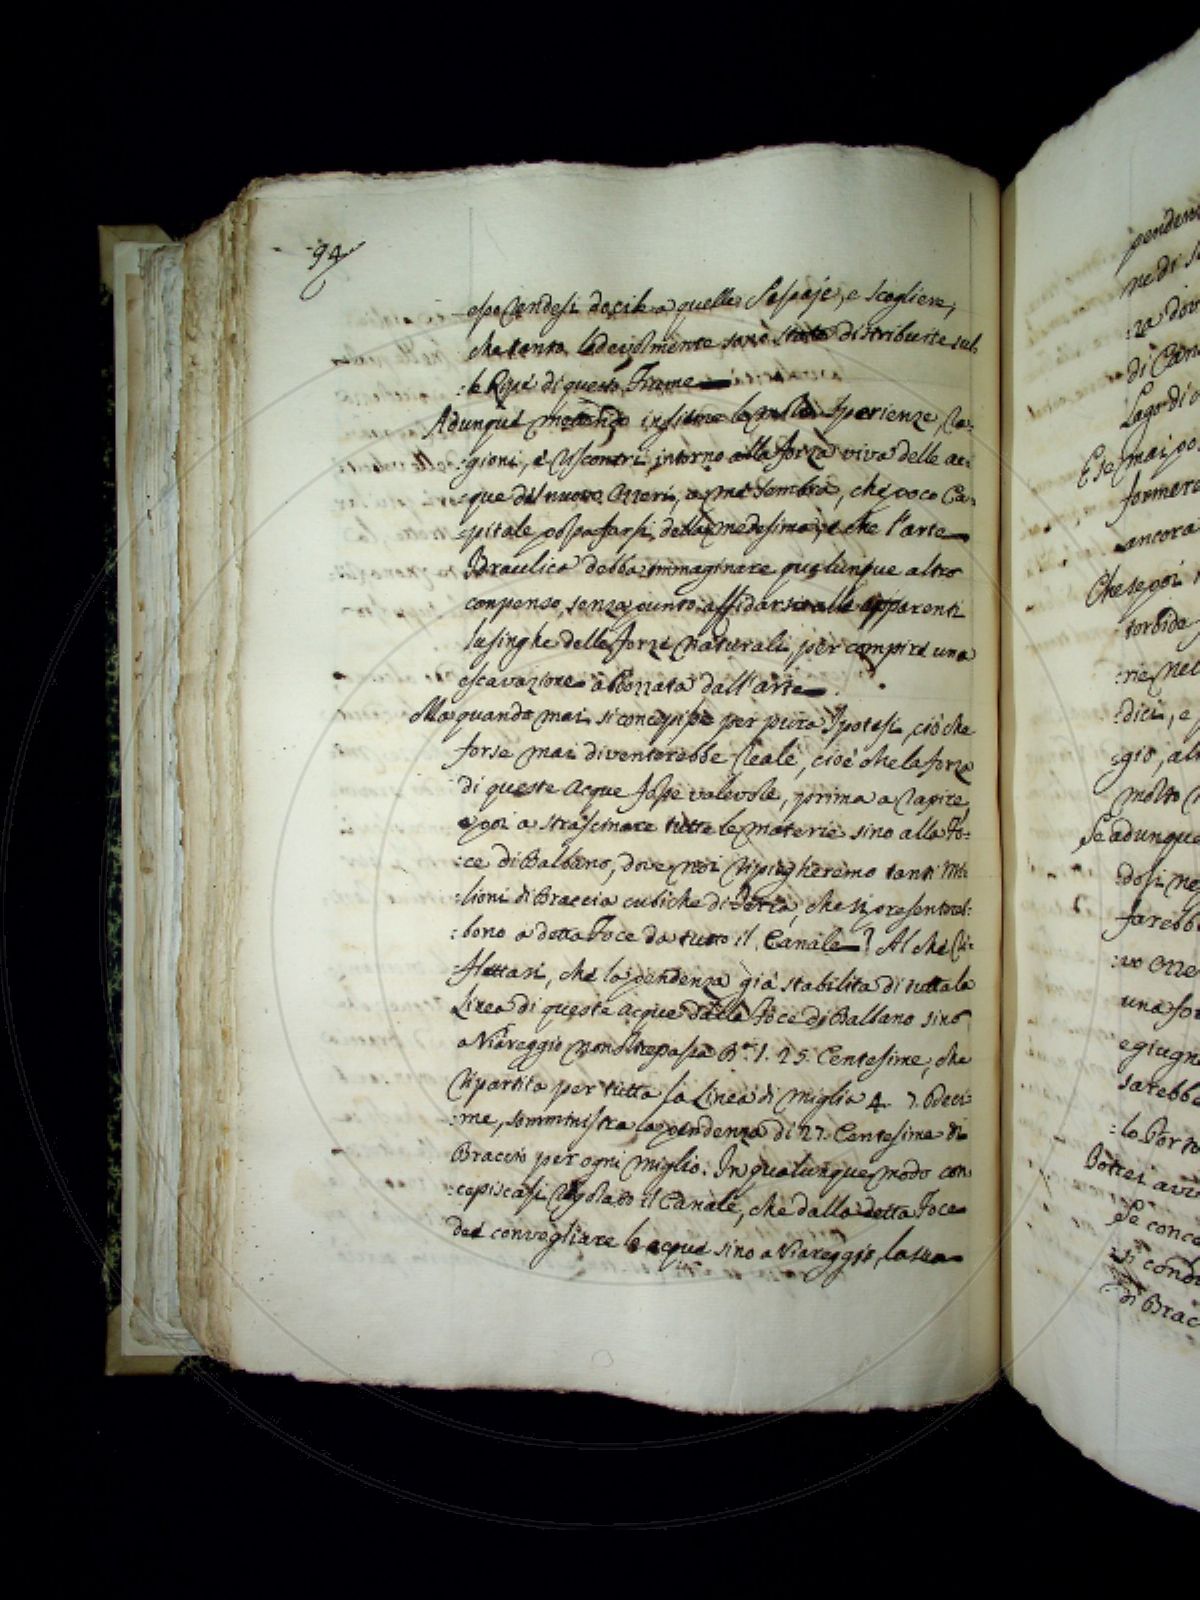 94
essendosi docile a quelle Pespaje, e Scogliere,
che tanto lodevolmente sono state distribuite sul:
:le Ripe di questo Fiume
Adunque mettendo insieme le molte Sperienze, Ra:
:gioni, e Riscontri intorno alla forza viva delle ac:
:que del nuovo Ozzeri, a me sembra, che poco Ca:
:pitale possa farsi della medesima, e che l'arte
Idraulica debba immaginare qualunque altro
conpenso, senza punto affidarsi alle apparenti
lusinghe delle forze naturali, per compire una
escavazione abbozzata dall'arte.
Ma quando mai si concepisse per pura Ipotesi, ciò che
forse mai diventerebbe Reale, cioè che la forza
di queste Acque fosse valevole, prima a rapire,
e poi a strascinare tutte le materie sino alla Fo:
:ce di Balbano, dove noi ripiegheremo tanti Mi:
:lioni di Braccia cubiche di Terra, che si presentereb:
:bono a detta Foce da tutto il Canale? Al che Ri:
:flettasi, che la pendenza già stabilita di tutta la
Linea di queste Acque dalla Foce di Balbano sino
a Viareggio non oltrepassa B.a 1. 25. Centesime, che
ripartita per tutta la Linea di miglia 4. 7. Deci:
:me, somministra la pendenza di 27. Centesime di
Braccio per ogni miglio. In qualunque modo con:
:cepiscasi regolato il Canale, che dalla detta Foce
dee convogliare le acque sino a Viareggio, la sua
penden
ne di
:za do
di Can
Lago di
E se mai po
formera
ancora
Che se poi
torbida
:rie nel
:dici, e
:gio, al
molto
Se adunque
:dosi ne
farebb
:vo Ozze
una for
e giugn
sarebbe
:lo Porto
Potrei
Se conce
:si cond
di Brac